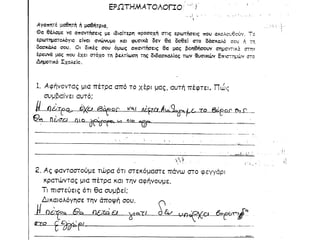 ΕΡΩΤΗΜΑΤΟΛΟΓΙΟ
Αγαπητέ μαθητή ή μαθήτρια,
Θα θέλαμε να απαντήσεις με ιδιαίτερη προσοχή στις ερωτήσεις που ακολουθούν. Το
ερωτηματολόγιο είναι ανώνυμο και φυσικά δεν θα δοθεί στο δάσκαλό σου ή τη
δασκάλα σου. Οι δικές σου όμως απαντήσεις θα μας βοηθήσουν σημαντικά στην
έρευνά μας που έχει στόχο τη βελτίωση της διδασκαλίας των Φυσικών Επιστημών στο
Δημοτικό Σχολείο.
1. Αφήνοντας μια πέτρα από το χέρι μας, αυτή πέφτει. Πώς
συμβαίνει αυτό;
Η πέτρα έχει βάρος και το βάρος της
Θα πέσει πιο
2. Ας φανταστούμε τώρα ότι στεκόμαστε πάνω στο φεγγάρι
κρατώντας μια πέτρα και την αφήνουμε.
Τι πιστεύεις ότι θα συμβεί;
Δικαιολόγησε την άποψή σου.
Η πέτρα θα πετάει γιατί δεν υπάρχει
στο φεγγάρι.